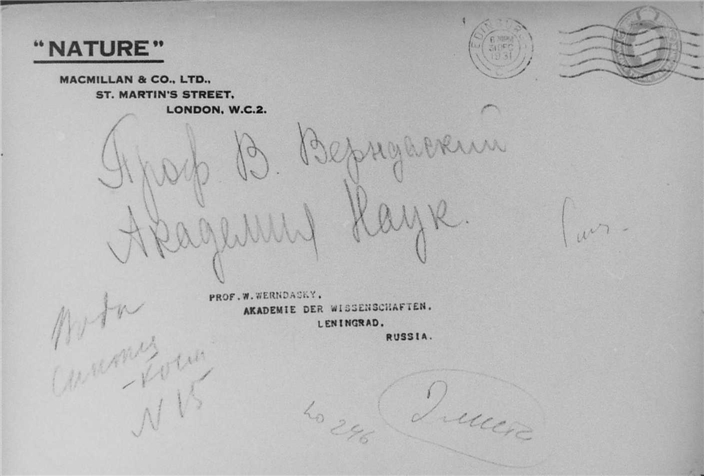 "NATURE"
MACMILLAN & CO., LTD.,
ST. MARTIN'S STREET,
LONDON, W.C.2.
EDINBURGH
1931
Проф В. Верндаский
Академия Наук.
PROF.W.WERNDASKY,
AKADEMIE DER WISSENSCHAFTEN,
LENINGRAD,
RUSSIA.
Вода
N 15
246